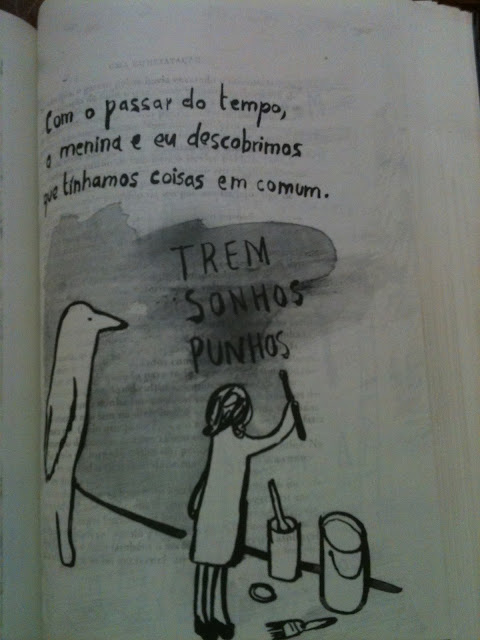 Com o passar do tempo,
a menina e eu descobrimos
que tínhamos coisas em comum.
TREM
SONHOS
PUNHOS